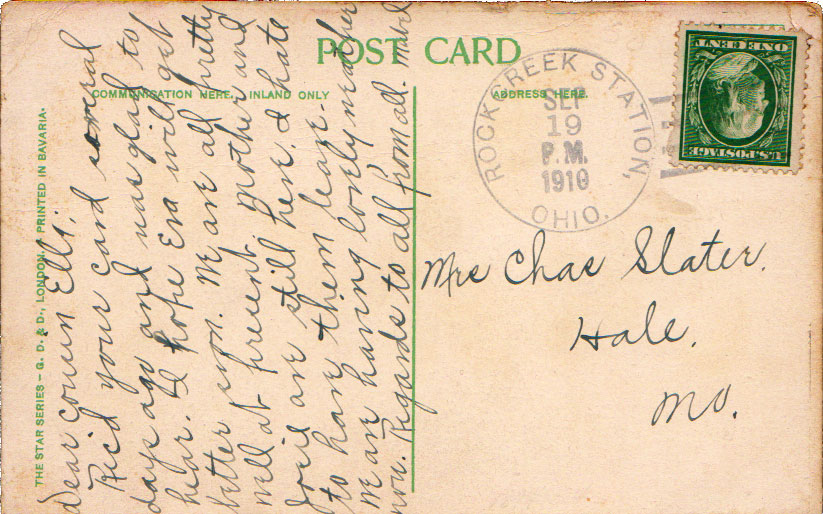 POST CARD
COMMUNICATION HERE, INLAND ONLY
ADDRESS HERE.
THE STAR SERIES – G. D. & D., LONDON. PRINTED IN BAVARIA.
Dear cousin Ella;
Rec'd your card several
days ago and was glad to
hear. I hope Eva will get
better soon. We are all pretty
well at present. Mother and
are still here. I hate
to have them leave.
We are having lovely weather
now. Regards to all from all. Mabel
ROCKCREEK STATION, OHIO.
SEP
19
P.M.
1910
U.S. POSTAGE
ONE CENT
Mrs Chas Slater.
Hale.
Mo.